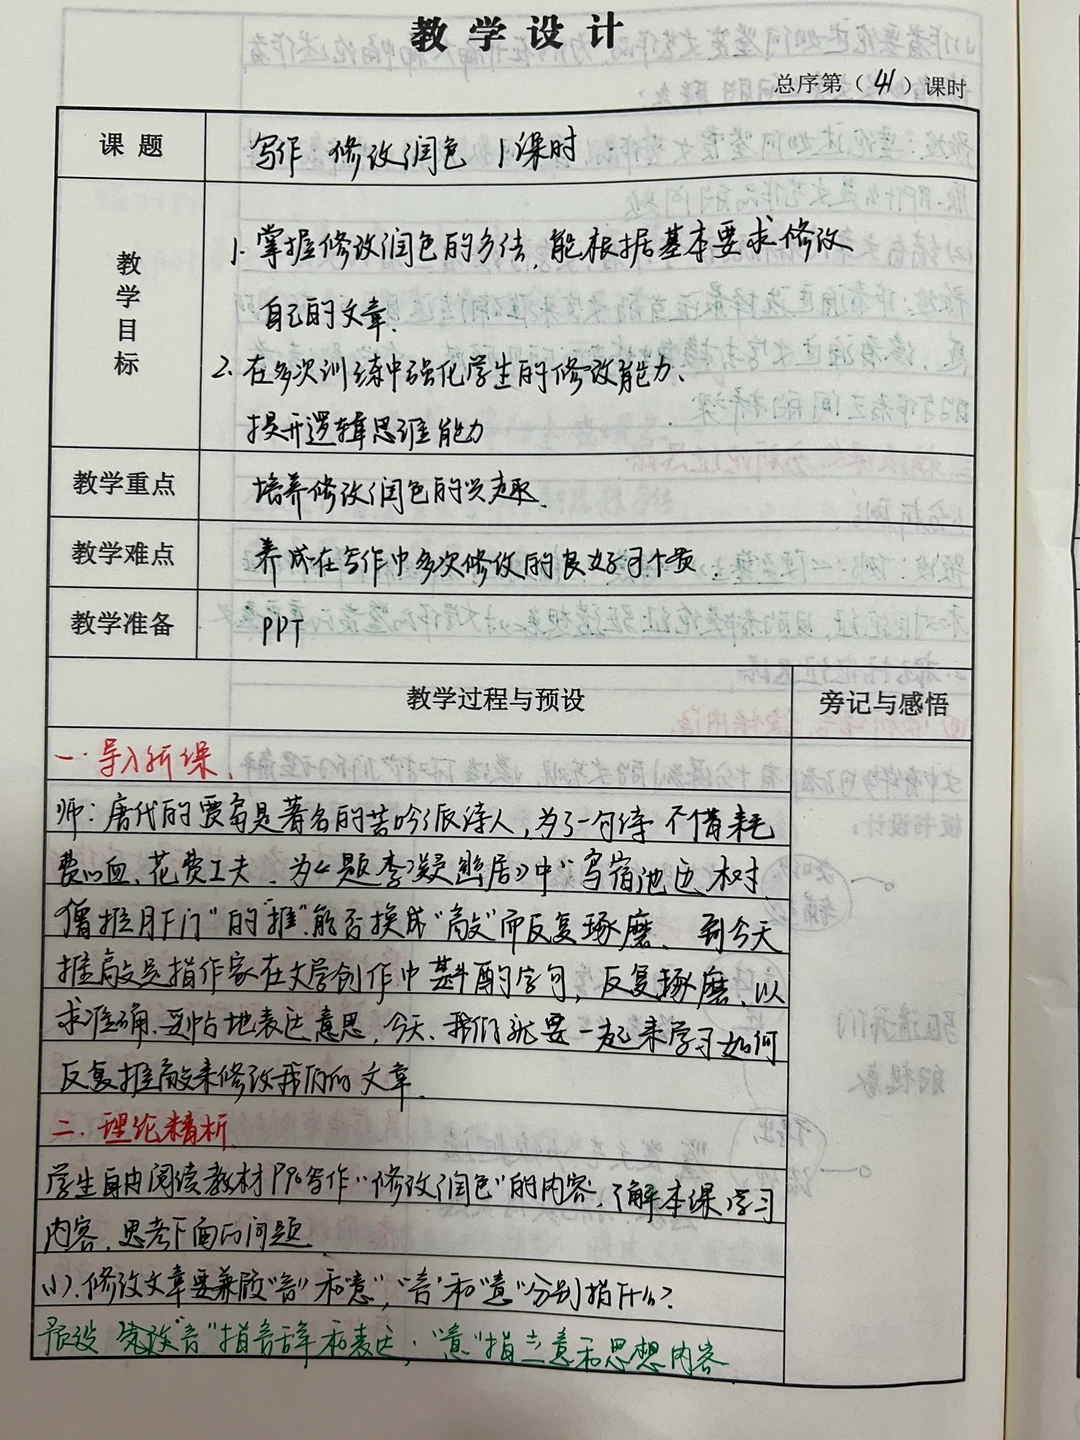 教学设计
总序第（41）课时
课题 写作 修改润色 1课时
教学目标
1. 掌握修改润色的方法，能根据基本要求修改
自己的文章.
2. 在多次训练中强化学生的修改能力、
提升逻辑思维能力
教学重点 培养修改润色的兴趣.
教学难点 养成在写作中多次修改的良好习惯.
教学准备 PPT
教学过程与预设 旁记与感悟
一. 导入新课.
师：唐代的贾岛是著名的苦吟派诗人，为了一句诗不惜耗
费心血、花费工夫. 为《题李凝幽居》中"鸟宿池边树
僧推月下门"的"推"能否换成"敲"而反复琢磨. 到今天
推敲是指作家在文学创作中斟酌字句，反复琢磨、以
求准确、妥帖地表达意思. 今天、我们就要一起来学习如何
反复推敲来修改我们的文章.
二. 理论精析.
学生自由阅读教材P96写作"修改润色"的内容，了解本课学习
内容. 思考下面的问题.
(1). 修改文章要兼顾"言"和"意"，"言"和"意"分别指什么？
预设 "言"指言辞和表达；"意"指立意和思想内容.